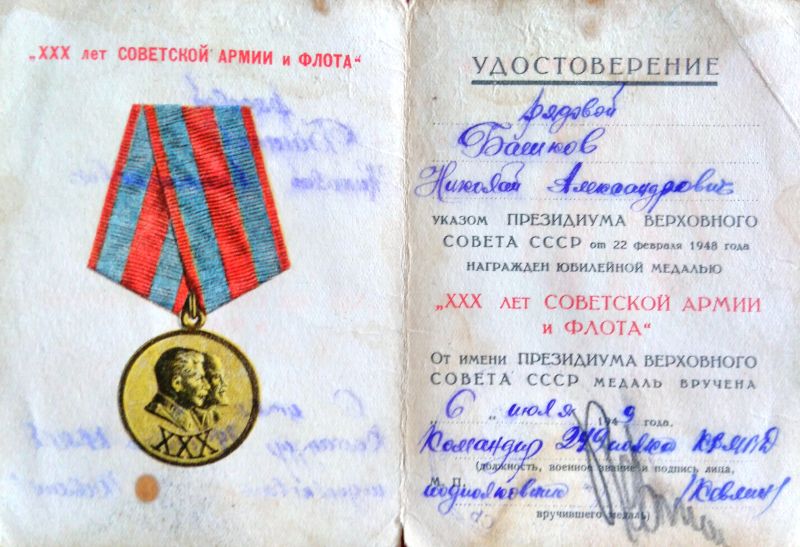 „XXX лет СОВЕТСКОЙ АРМИИ и ФЛОТА“
XXX
УДОСТОВЕРЕНИЕ
рядовой
Башков
Николай Александрович
УКАЗОМ ПРЕЗИДИУМА ВЕРХОВНОГО
СОВЕТА СССР от 22 февраля 1948 года
НАГРАЖДЕН ЮБИЛЕЙНОЙ МЕДАЛЬЮ
„XXX ЛЕТ СОВЕТСКОЙ АРМИИ
и ФЛОТА“
От имени ПРЕЗИДИУМА ВЕРХОВНОГО
СОВЕТА СССР МЕДАЛЬ ВРУЧЕНА
6 „ июля 1949 года.
Командир полка
(должность, военное звание и подпись лица,
М. П. подполковник
вручившего медаль)